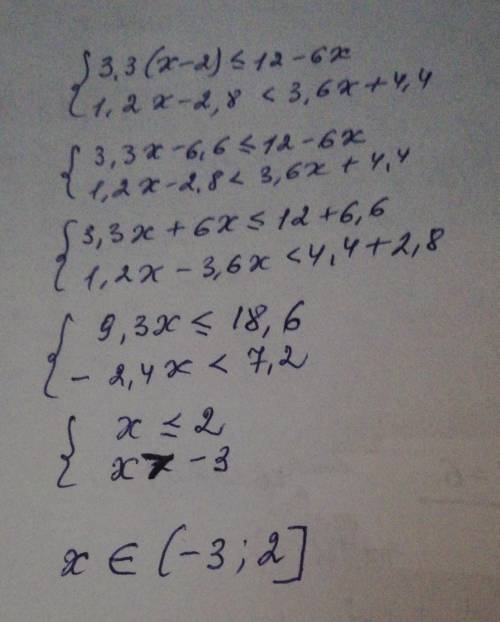 { 3,3(x-2) ≤ 12-6x
1,2x-2,8 < 3,6x+4,4
{ 3,3x-6,6 ≤ 12-6x
1,2x-2,8 < 3,6x+4,4
{ 3,3x+6x ≤ 12+6,6
1,2x-3,6x < 4,4+2,8
{ 9,3x ≤ 18,6
-2,4x < 7,2
{ x ≤ 2
x > -3
x ∈ (-3; 2]